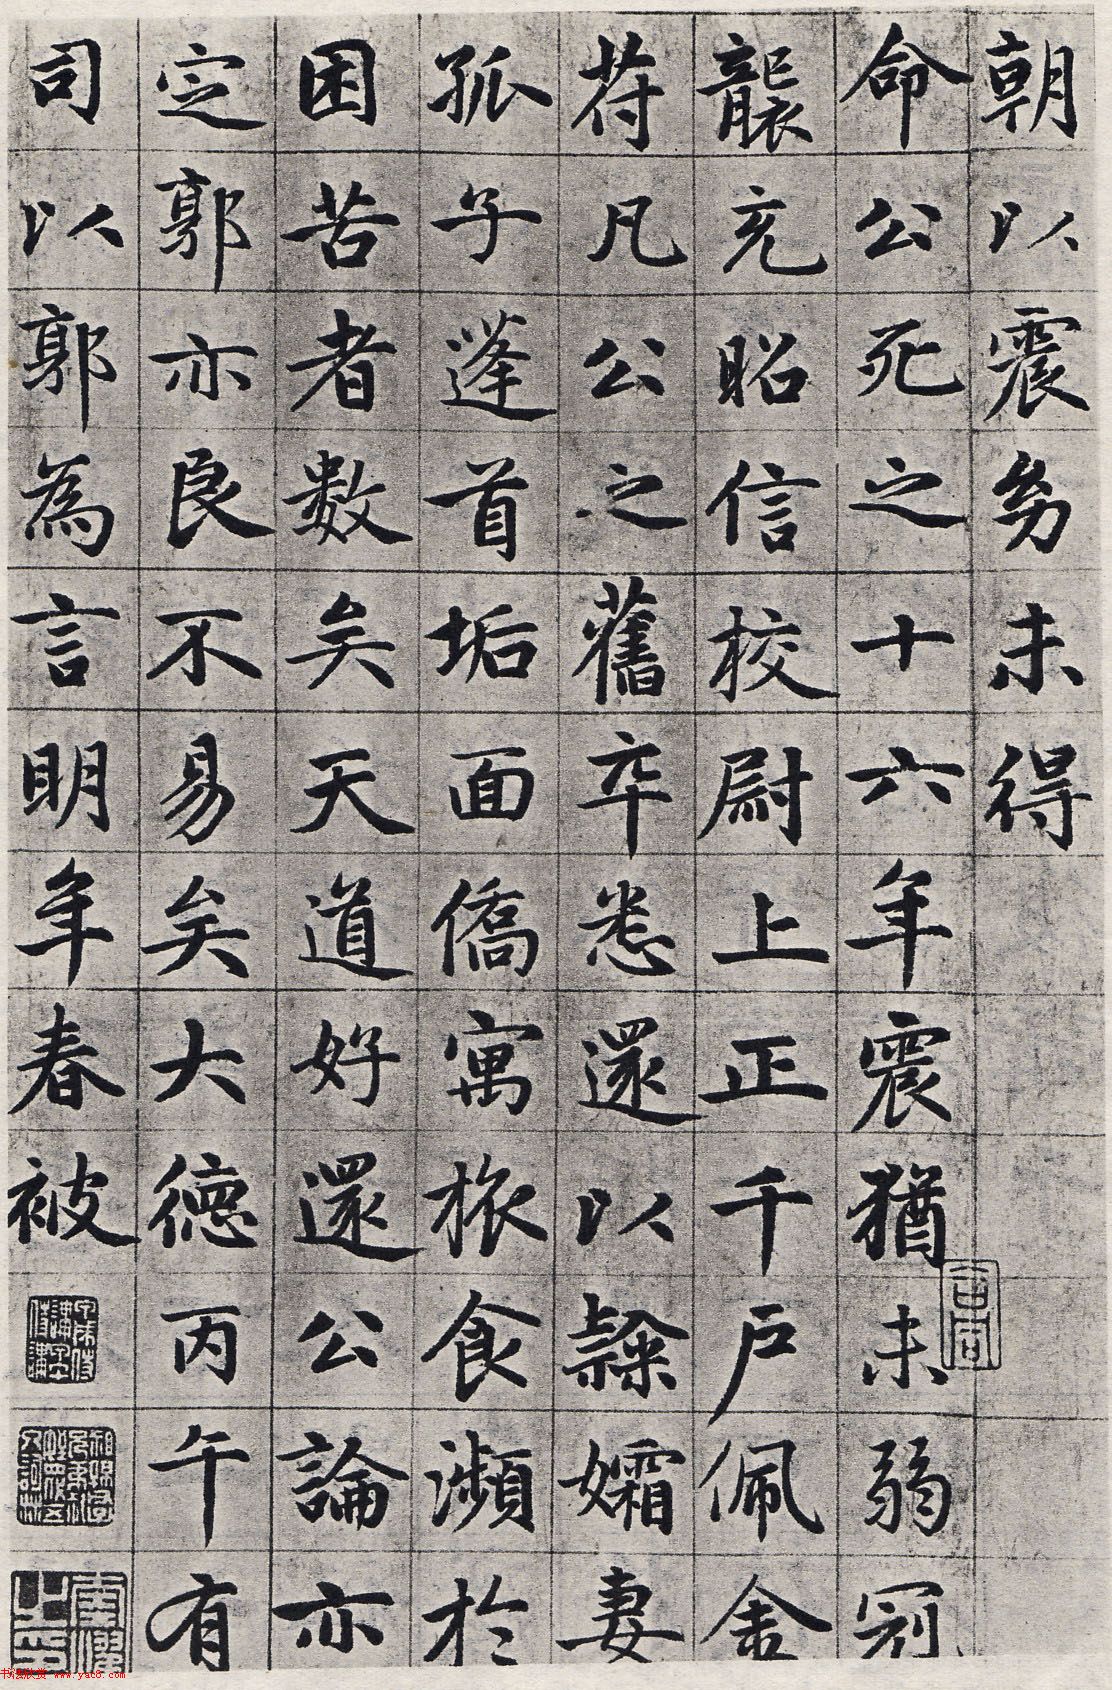 朝以震幼未得
命公死之十六年震猶未弱冠
襲充昭信校尉上正千戶佩金
符凡公之舊卒悉還以隸孀妻
孤子蓬首垢面僑寓旅食瀕於
困苦者數矣天道好還公論亦
定郭亦良不易矣大德丙午有
司以郭為言明年春被
书法欣赏 www.yac8.com